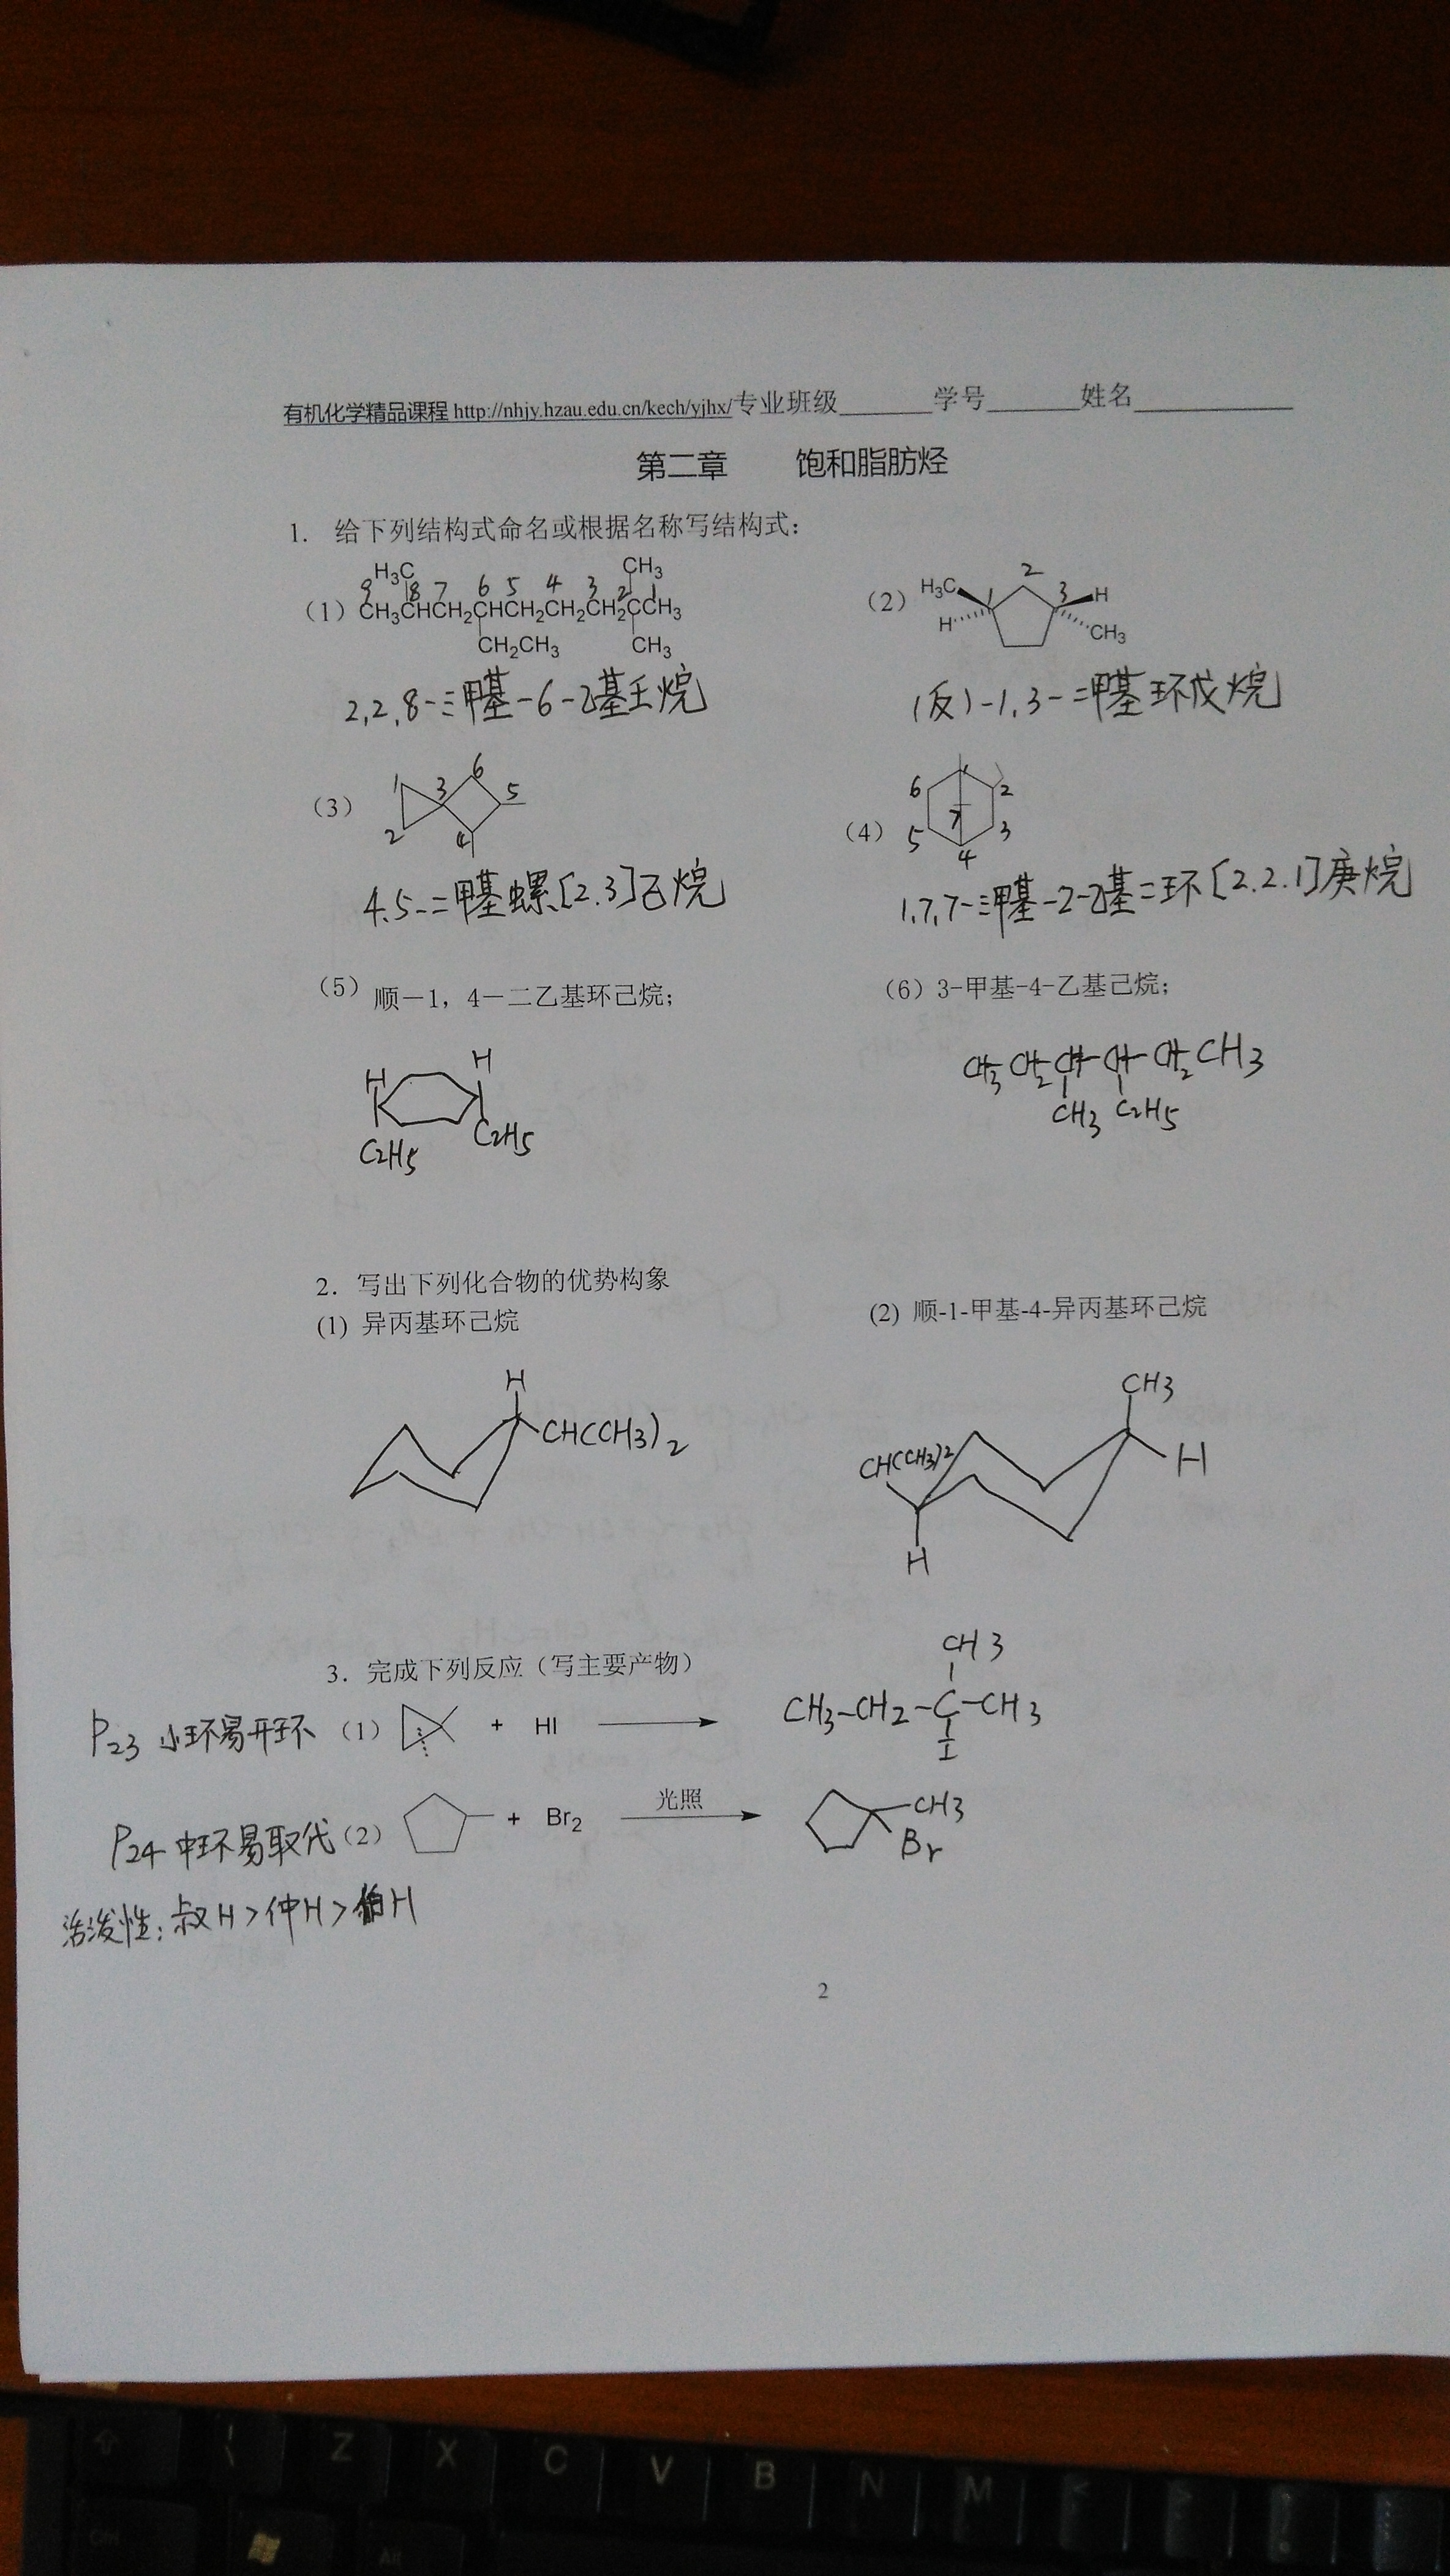 有机化学精品课程 http://nhjy.hzau.edu.cn/kech/yjhx/专业班级________学号________姓名____________
第二章 饱和脂肪烃
1. 给下列结构式命名或根据名称写结构式:
H₃C CH₃
9 8 7 6 5 4 3 2 1
(1) CH₃CHCH₂CHCH₂CH₂CH₂CCH₃
CH₂CH₃ CH₃
2,2,8-三甲基-6-乙基壬烷
(2) H₃C 1 2 3 H
H CH₃
(反)-1,3-二甲基环戊烷
(3) 1 2 3 4 5 6
4,5-二甲基螺[2.3]己烷
(4) 1 2 3 4 5 6 7
1,7,7-三甲基-2-乙基二环[2.2.1]庚烷
(5) 顺-1，4-二乙基环己烷;
H H
C₂H₅ C₂H₅
(6) 3-甲基-4-乙基己烷;
CH₃CH₂CH-CH-CH₂CH₃
CH₃ C₂H₅
2. 写出下列化合物的优势构象
(1) 异丙基环己烷
H
CH(CH₃)₂
(2) 顺-1-甲基-4-异丙基环己烷
CH₃
CH(CH₃)₂ H
H
3. 完成下列反应（写主要产物）
P23 小环易开环 (1) + HI
CH₃
CH₃-CH₂-C-CH₃
I
P24 中环易取代 (2) + Br₂ 光照
CH₃
Br
活泼性: 叔H>仲H>伯H
2
\ Z X C V B N M